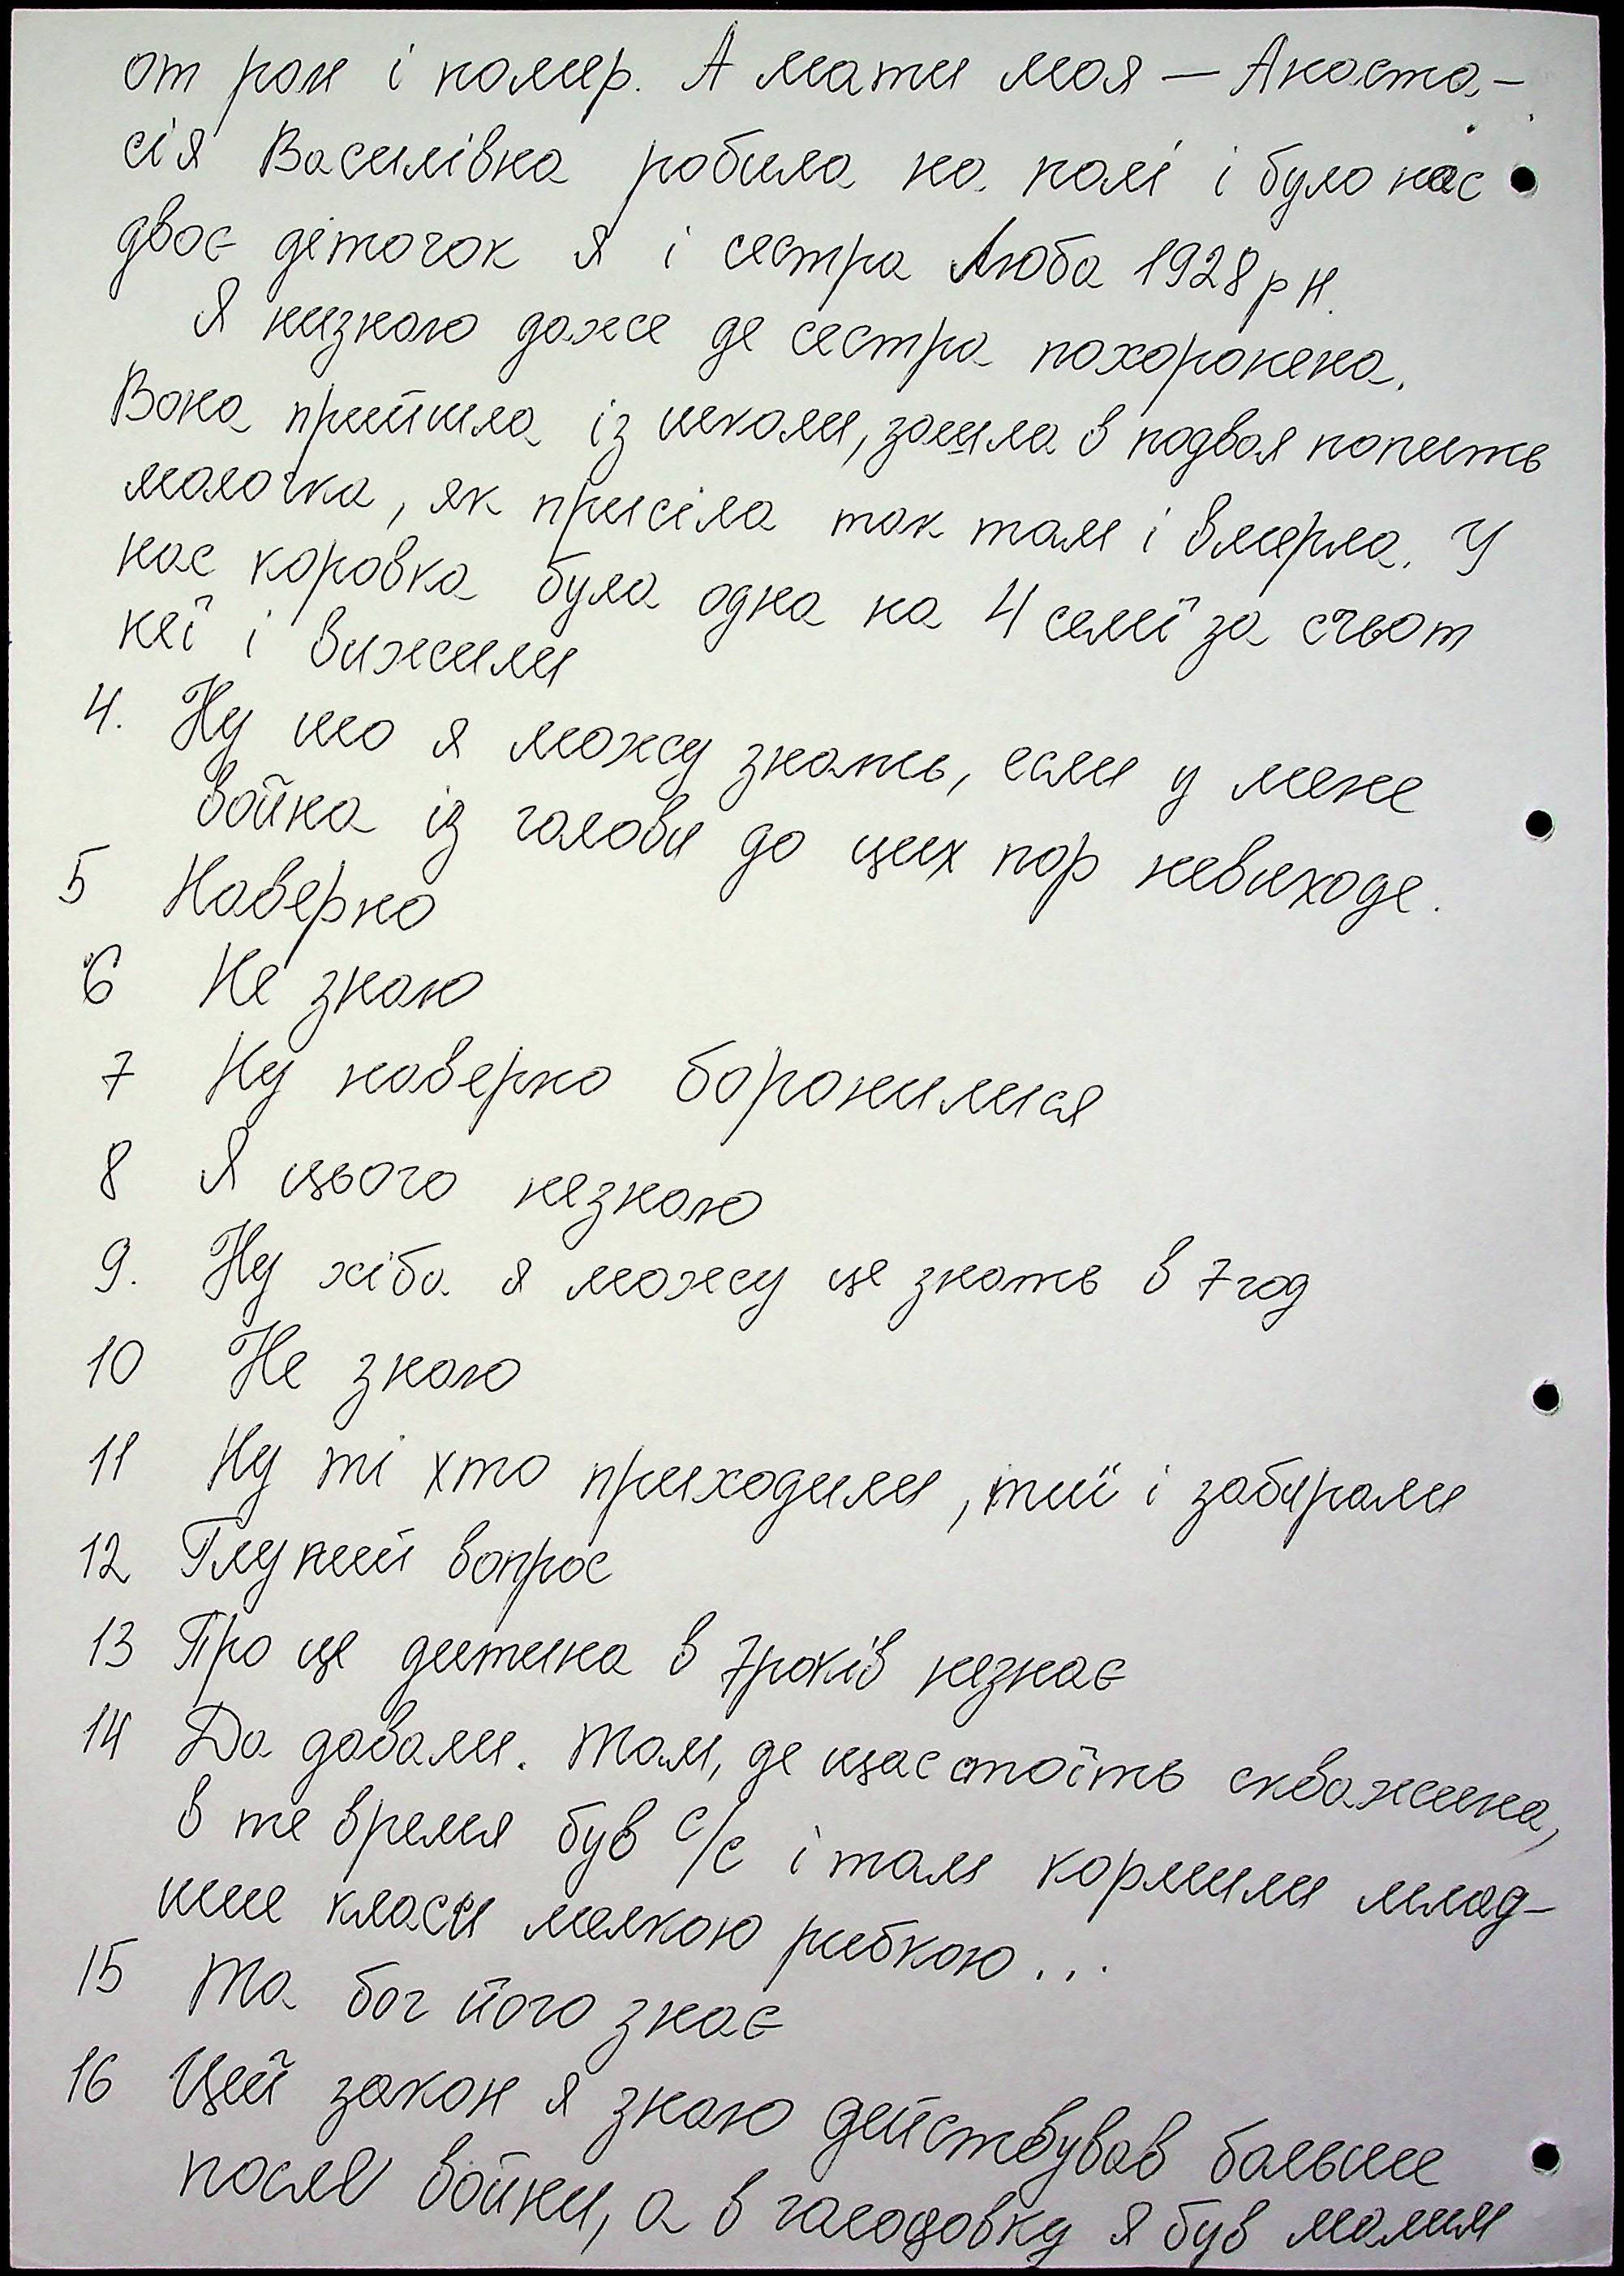 от рак і помер. А мати моя — Анаста-
сія Василівна робила на полі і було нас
двоє діточок я і сестра Люба 1928 р н.
Я незнаю даже де сестра похоронена.
Вона прийшла із школи, зашла в подвал попить
молочка, як присіла так там і вмерла. У
нас коровка була одна на 4 семї за счьот
неї і вижили
4. Ну шо я можу знать, если у мене
война із голови до цих пор невиходе.
5 Наверно
6 Не знаю
7 Ну наверно боронилися
8 Я цього незнаю
9. Ну хіба я можу це знать в 7 год
10 Не знаю
11 Ну ті хто приходили, тиї і забирали
12 Глупий вопрос
13 Про це дитина в 7 років незнає
14 Да давали. Там, де щас стоїть скважина,
в те время був с/с і там кормили млад-
ше класи мелкою рибкою...
15 Та бог його знає
16 Цей закон я знаю действував больше
после войни, а в голодовку я був малим